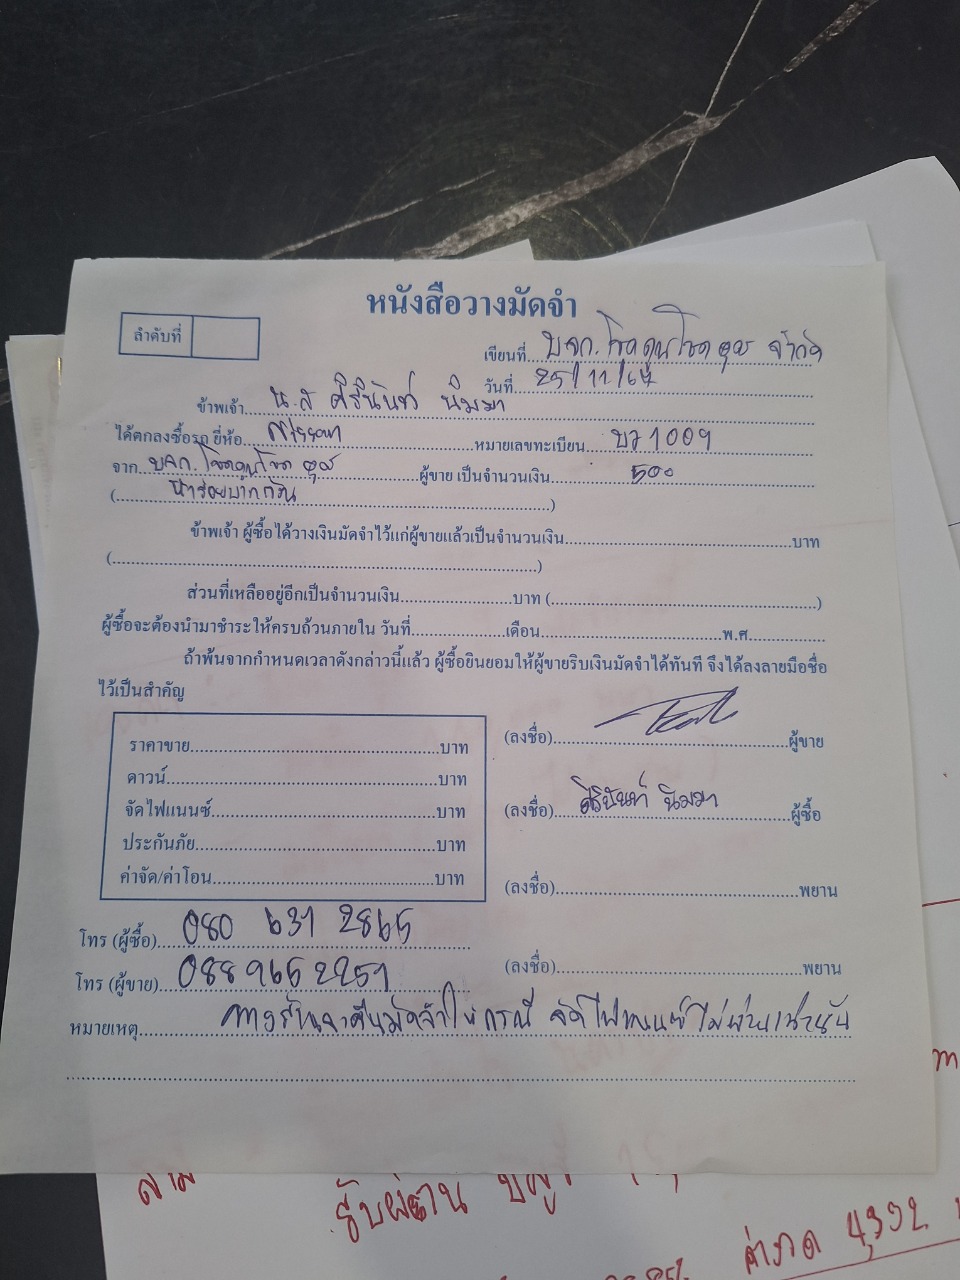 หนังสือวางมัดจำ
ลำดับที่
เขียนที่ บจก. โชคคูณโชค จำกัด
วันที่ 25/11/67
ข้าพเจ้า น.ส ศิรินันท์ นิมมา
ได้ตกลงซื้อรถ ยี่ห้อ Nissan หมายเลขทะเบียน บว 1009
จาก บจก. โชคคูณโชค ผู้ขาย เป็นจำนวนเงิน 500
(ห้าร้อยบาทถ้วน)
ข้าพเจ้า ผู้ซื้อได้วางเงินมัดจำไว้แก่ผู้ขายแล้วเป็นจำนวนเงิน บาท
( )
ส่วนที่เหลืออยู่อีกเป็นจำนวนเงิน บาท ( )
ผู้ซื้อจะต้องนำมาชำระให้ครบถ้วนภายใน วันที่ เดือน พ.ศ
ถ้าพ้นจากกำหนดเวลาดังกล่าวนี้แล้ว ผู้ซื้อยินยอมให้ผู้ขายริบเงินมัดจำได้ทันที จึงได้ลงลายมือชื่อ
ไว้เป็นสำคัญ
ราคาขาย บาท
ดาวน์ บาท
จัดไฟแนนซ์ บาท
ประกันภัย บาท
ค่าจัด/ค่าโอน บาท
(ลงชื่อ) ผู้ขาย
(ลงชื่อ) ศิรินันท์ นิมมา ผู้ซื้อ
(ลงชื่อ) พยาน
(ลงชื่อ) พยาน
โทร (ผู้ซื้อ) 080 631 2865
โทร (ผู้ขาย) 0889652251
หมายเหตุ ทางร้านจะคืนมัดจำให้กรณี จัดไฟแนนซ์ไม่ผ่านเท่านั้น
รับผ่าน บัญชี
4,392